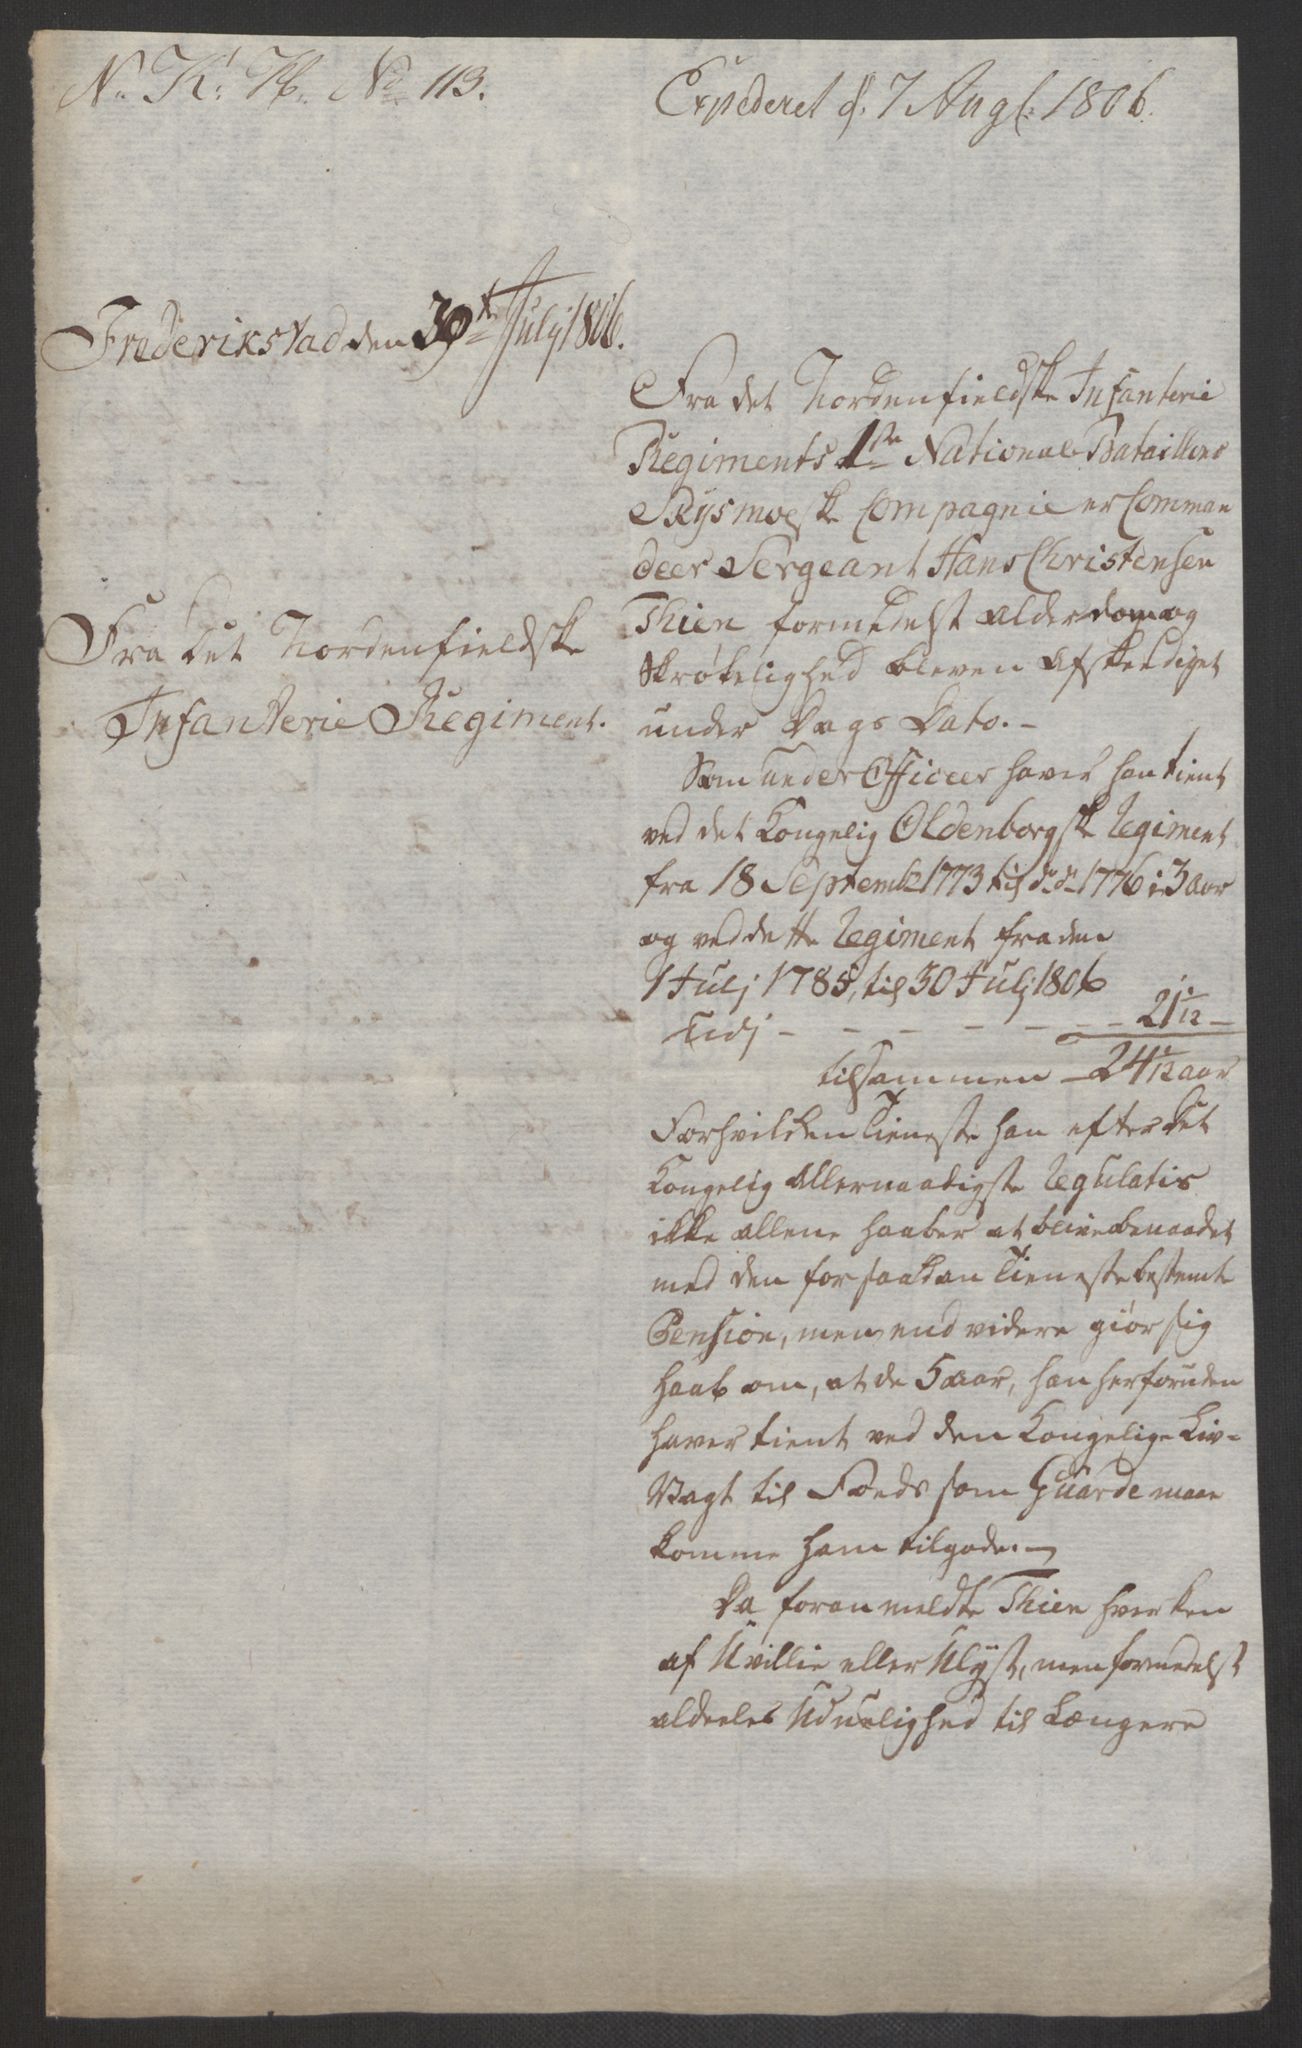 N. K: Pf. No 113.
Expederet d. 7 Aug: 1806.
Frederikstad den 30te July 1806.
Fra det Nordenfieldske
Infanterie Regiment.
Fra det Nordenfieldske Infanterie
Regiments 1ste National Bataillons
Rysmoeske Compagnie er Comman
deer Sergeant Hans Christensen
Thien formedelst alderdom og
Skrøbelighed bleven Afskediget
under Dags Dato. -
Som under Officeer haver han tient
ved det Kongelig Oldenborgske Regiment
fra 18 Septemb 1773 til d. d. 1776 i 3 aar
og ved dette Regiment fra den
1 Julj 1785, til 30 Julj 1806
- - - - - - - 21 1/12 -
tilsammen - 24 1/12 aar
For hvilken Tieneste han efter det
Kongelig Allernaadigste Regulativ
ikke allene haaber at blive benaadet
med den for saadan Tieneste bestemte
Pension, men end videre giør sig
Haab om, at de 5 aar, han herforuden
haver tient ved den Kongelige Liv-
Vagt til Foeds som Guarde maae
komme ham tilgode. -
Da foranmeldte Thien hverken
af Uvillie eller Ulyst, men formedelst
aldeeles Uduelighed til Længere